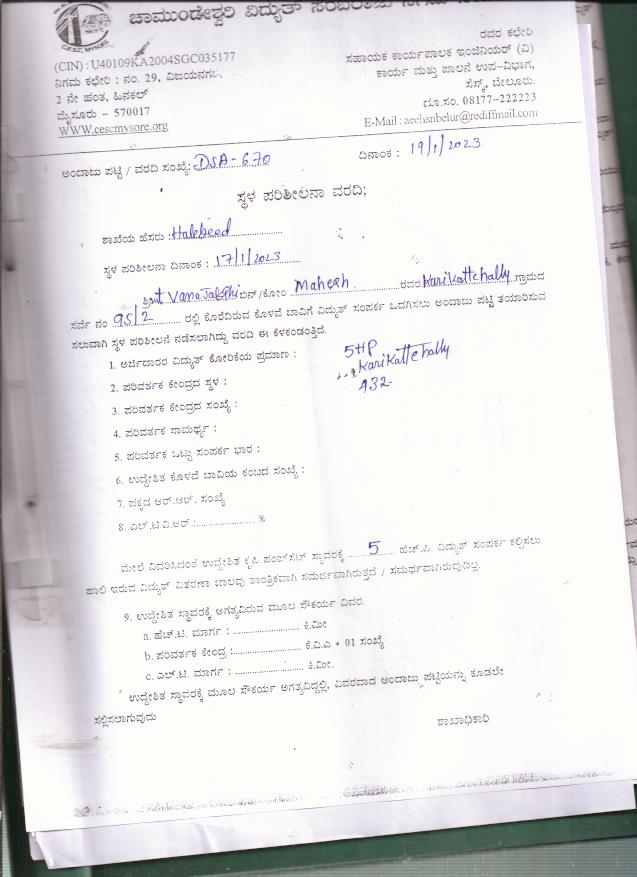 ಚಾಮುಂಡೇಶ್ವರಿ ವಿದ್ಯುತ್ ಸರಬರಾಜು ನಿಗಮ
C.E.S.C. MYSORE
(CIN) : U40109KA2004SGC035177
ನಿಗಮ ಕಛೇರಿ : ನಂ. 29, ವಿಜಯನಗರ
2 ನೇ ಹಂತ, ಹಿನಕಲ್
ಮೈಸೂರು – 570017
WWW.cescmysore.org
ರವರ ಕಛೇರಿ
ಸಹಾಯಕ ಕಾರ್ಯಪಾಲಕ ಇಂಜಿನಿಯರ್ (ವಿ)
ಕಾರ್ಯ ಮತ್ತು ಪಾಲನೆ ಉಪ-ವಿಭಾಗ,
ಸೆಸ್ಕ್, ಬೇಲೂರು.
ದೂ.ಸಂ. 08177-222223
E-Mail : aeehsnbelur@rediffmail.com
ಅಂದಾಜು ಪಟ್ಟಿ / ವರದಿ ಸಂಖ್ಯೆ: DSA-670 ದಿನಾಂಕ : 19/1/2023
ಸ್ಥಳ ಪರಿಶೀಲನಾ ವರದಿ;
ಶಾಖೆಯ ಹೆಸರು : Halebeed
ಸ್ಥಳ ಪರಿಶೀಲನಾ ದಿನಾಂಕ : 17/1/2023
ಬಿನ್/ಕೋಂ Mahesh ರವರ Karikattehally ಗ್ರಾಮದ
ಸರ್ವೆ ನಂ 95/2 ರಲ್ಲಿ ಕೊರೆದಿರುವ ಕೊಳವೆ ಬಾವಿಗೆ ವಿದ್ಯುತ್ ಸಂಪರ್ಕ ಒದಗಿಸಲು ಅಂದಾಜು ಪಟ್ಟಿ ತಯಾರಿಸುವ
ಸಲುವಾಗಿ ಸ್ಥಳ ಪರಿಶೀಲನೆ ನಡೆಸಲಾಗಿದ್ದು ವರದಿ ಈ ಕೆಳಕಂಡಂತ್ತಿದೆ.
1. ಅರ್ಜಿದಾರರ ವಿದ್ಯುತ್ ಕೋರಿಕೆಯ ಪ್ರಮಾಣ : 5HP
2. ಪರಿವರ್ತಕ ಕೇಂದ್ರದ ಸ್ಥಳ : Karikattehally
3. ಪರಿವರ್ತಕ ಕೇಂದ್ರದ ಸಂಖ್ಯೆ :
4. ಪರಿವರ್ತಕ ಸಾಮರ್ಥ್ಯ :
5. ಪರಿವರ್ತಕ ಒಟ್ಟು ಸಂಪರ್ಕ ಭಾರ :
6. ಉದ್ದೇಶಿತ ಕೊಳವೆ ಬಾವಿಯ ಕಂಬದ ಸಂಖ್ಯೆ :
7. ಪಕ್ಕದ ಆರ್.ಆರ್. ಸಂಖ್ಯೆ
8. ಎಲ್.ಟಿ.ವಿ.ಆರ್ :.................... %
ಮೇಲೆ ವಿವರಿಸಿದಂತೆ ಉದ್ದೇಶಿತ ಕೃಷಿ ಪಂಪ್‌ಸೆಟ್ ಸ್ಥಾವರಕ್ಕೆ 5 ಹೆಚ್.ಪಿ. ವಿದ್ಯುತ್ ಸಂಪರ್ಕ ಕಲ್ಪಿಸಲು
ಹಾಲಿ ಇರುವ ವಿದ್ಯುತ್ ವಿತರಣಾ ಜಾಲವು ತಾಂತ್ರಿಕವಾಗಿ ಸಮರ್ಥವಾಗಿರುತ್ತದೆ / ಸಮರ್ಥವಾಗಿರುವುದಿಲ್ಲ.
9. ಉದ್ದೇಶಿತ ಸ್ಥಾವರಕ್ಕೆ ಅಗತ್ಯವಿರುವ ಮೂಲ ಸೌಕರ್ಯ ವಿವರ.
a. ಹೆಚ್.ಟಿ. ಮಾರ್ಗ : ...................... ಕಿ.ಮೀ
b. ಪರಿವರ್ತಕ ಕೇಂದ್ರ :....................... ಕೆ.ವಿ.ಎ * 01 ಸಂಖ್ಯೆ
c. ಎಲ್.ಟಿ. ಮಾರ್ಗ : ....................... ಕಿ.ಮೀ.
* ಉದ್ದೇಶಿತ ಸ್ಥಾವರಕ್ಕೆ ಮೂಲ ಸೌಕರ್ಯ ಅಗತ್ಯವಿದ್ದಲ್ಲಿ, ವಿವರವಾದ ಅಂದಾಜು ಪಟ್ಟಿಯನ್ನು ಕೂಡಲೇ
ಸಲ್ಲಿಸಲಾಗುವುದು
ಶಾಖಾಧಿಕಾರಿ